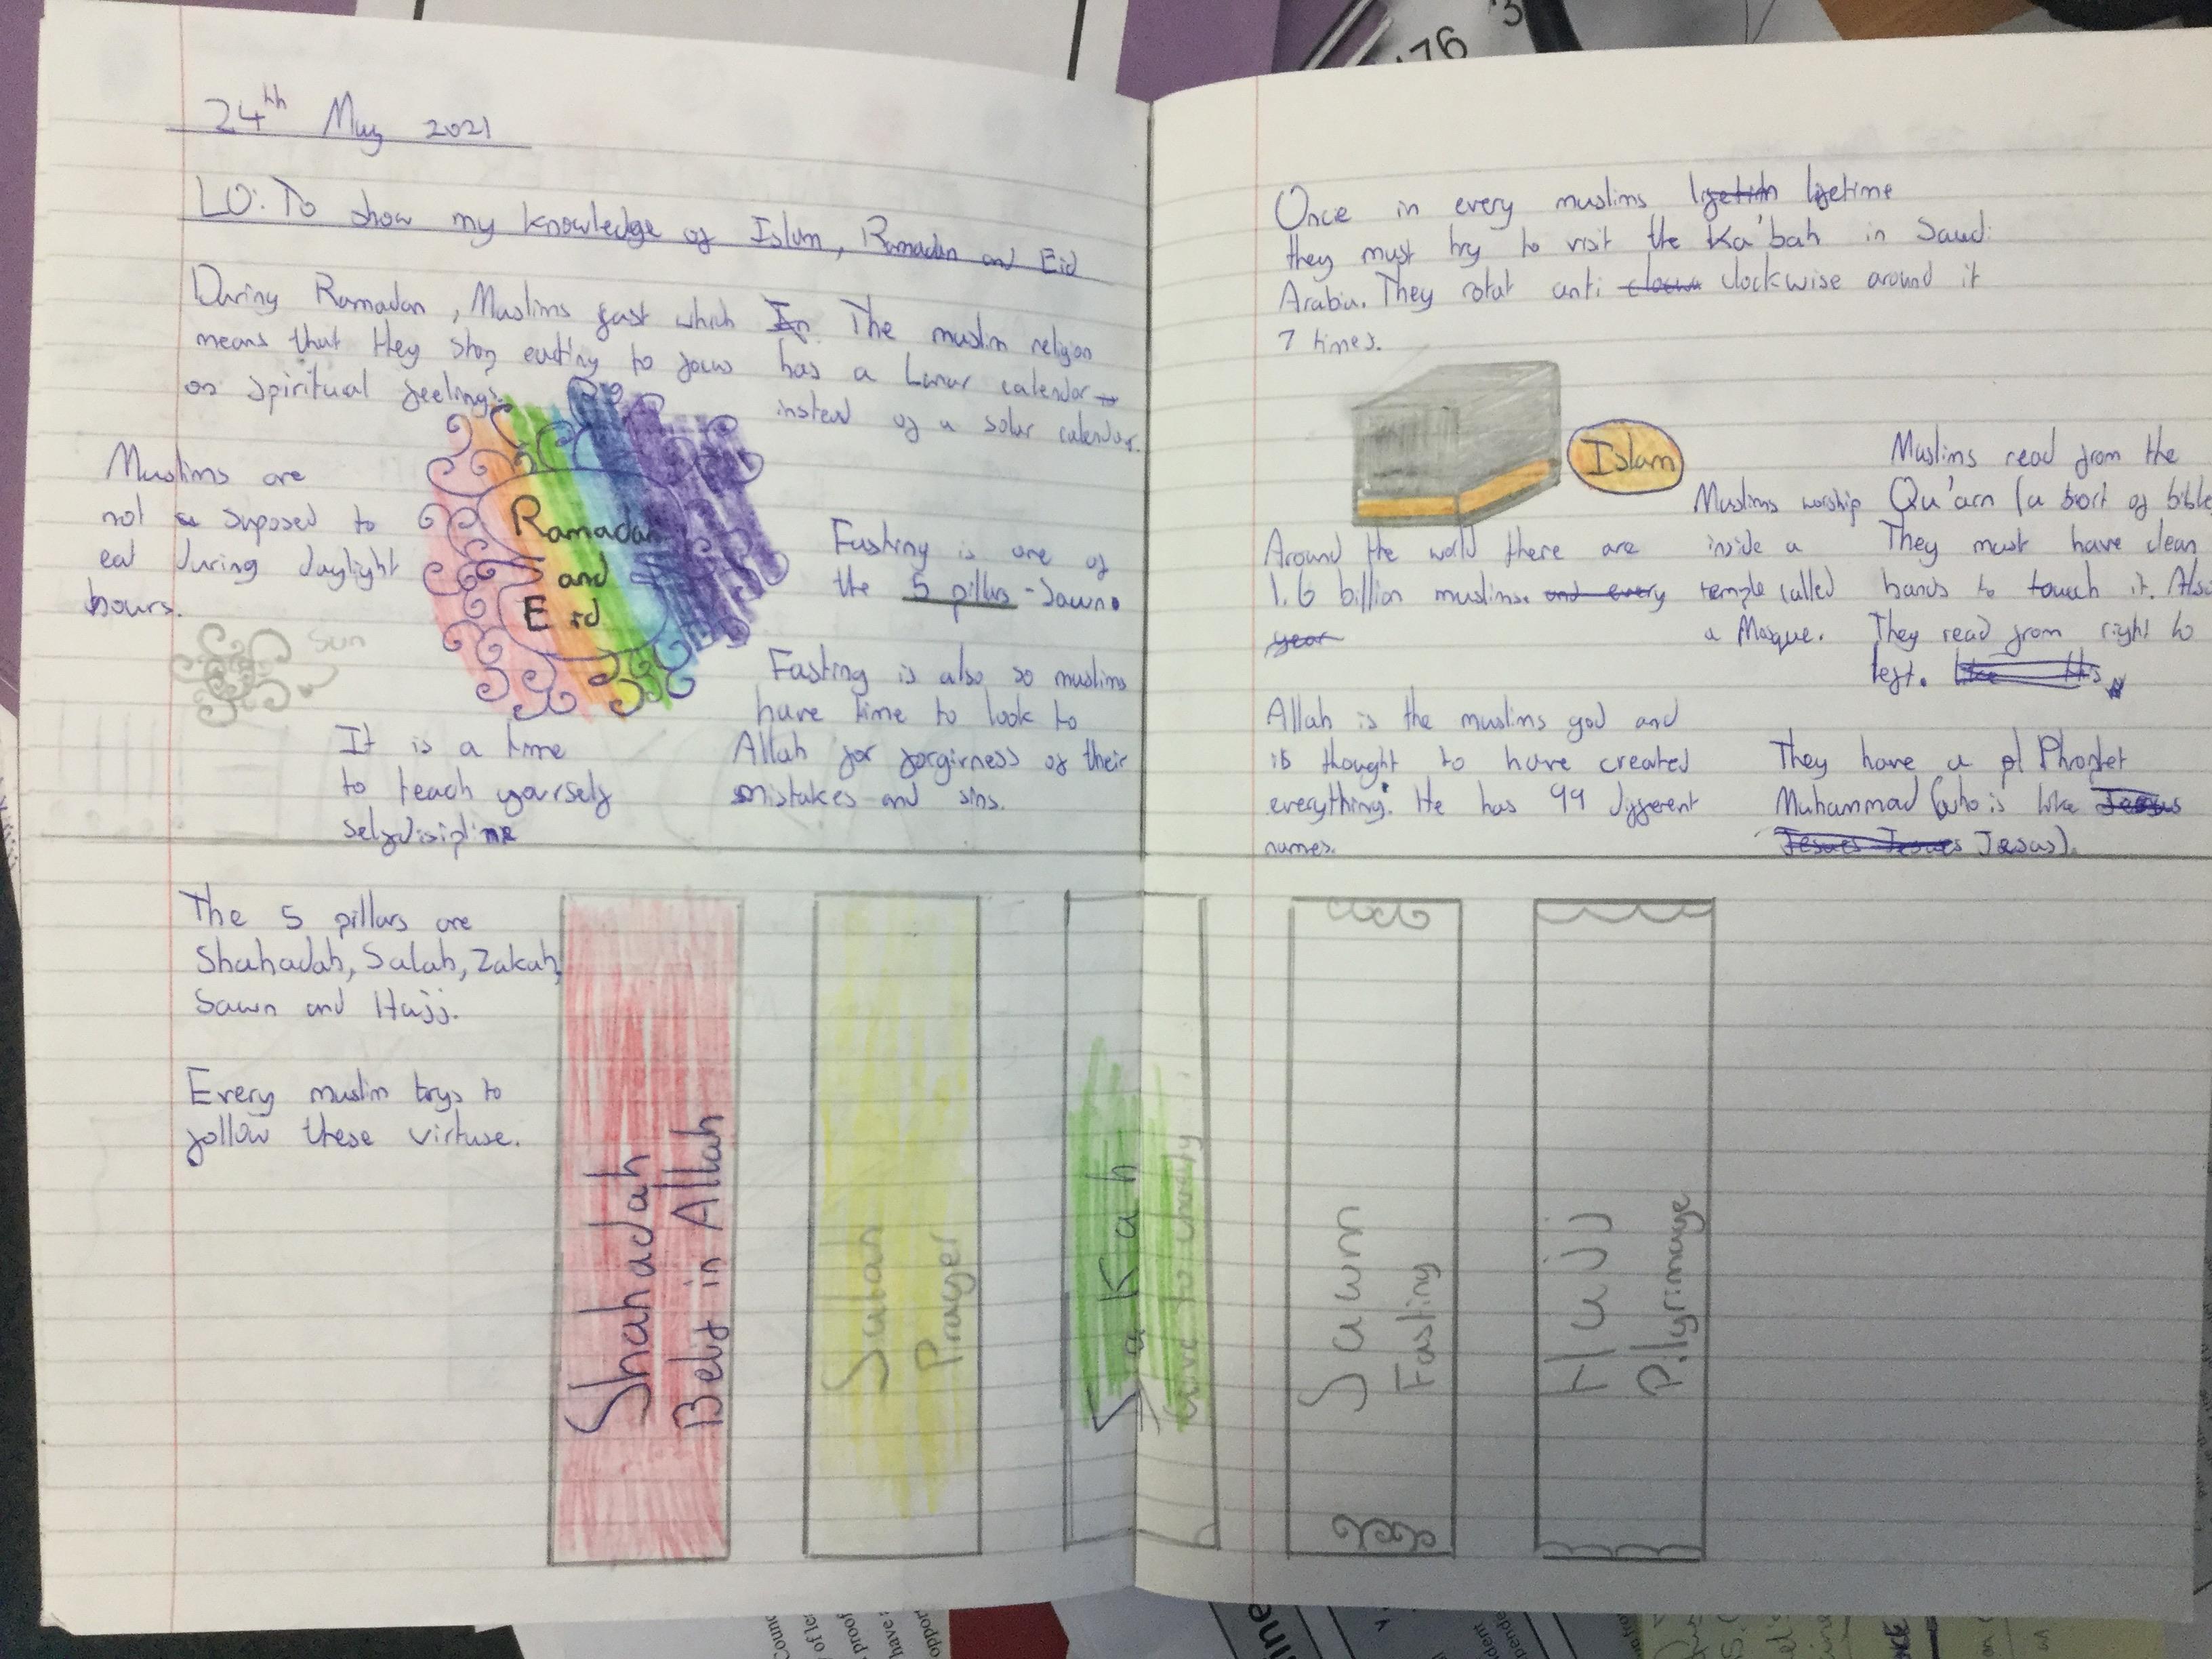 24th May 2021
LO: To show my knowledge of Islam, Ramadan and Eid
During Ramadan, Muslims fast which
means that they stop eating to focus
on spiritual feelings.
The muslim religion
has a Lunar calendar
instead of a solar calendar.
Muslims are
not suposed to
eat during daylight
hours.
Sun
Ramadan
and
Eid
Fasting is one of
the 5 pillars - Sawn.
Fasting is also so muslims
have time to look to
Allah for forgivness of their
mistakes and sins.
It is a time
to teach yourself
selfdisipline
The 5 pillars are
Shahadah, Salah, Zakah,
Sawn and Hajj.
Every muslim trys to
follow these virtuse.
Shahadah
Belif in Allah
Salah
Prayer
Zakah
Give to charity
Once in every muslims lifetime
they must try to visit the Ka'bah in Saudi
Arabia. They rotat anti clockwise around it
7 times.
Islam
Around the world there are
1.6 billion muslims. and every
year
Muslims worship
inside a
temple called
a Mosque.
Muslims read from the
Qu'arn (a sort of bible
They must have clean
hands to touch it. Also
They read from right to
left. like this
Allah is the muslims god and
is thought to have created
everything. He has 99 different
names.
They have a Phroplet
Muhammad (who is like Jesus
Jesues Jesues Jesus).
Sawn
Fasting
Hajj
Pilgrimage
176 3